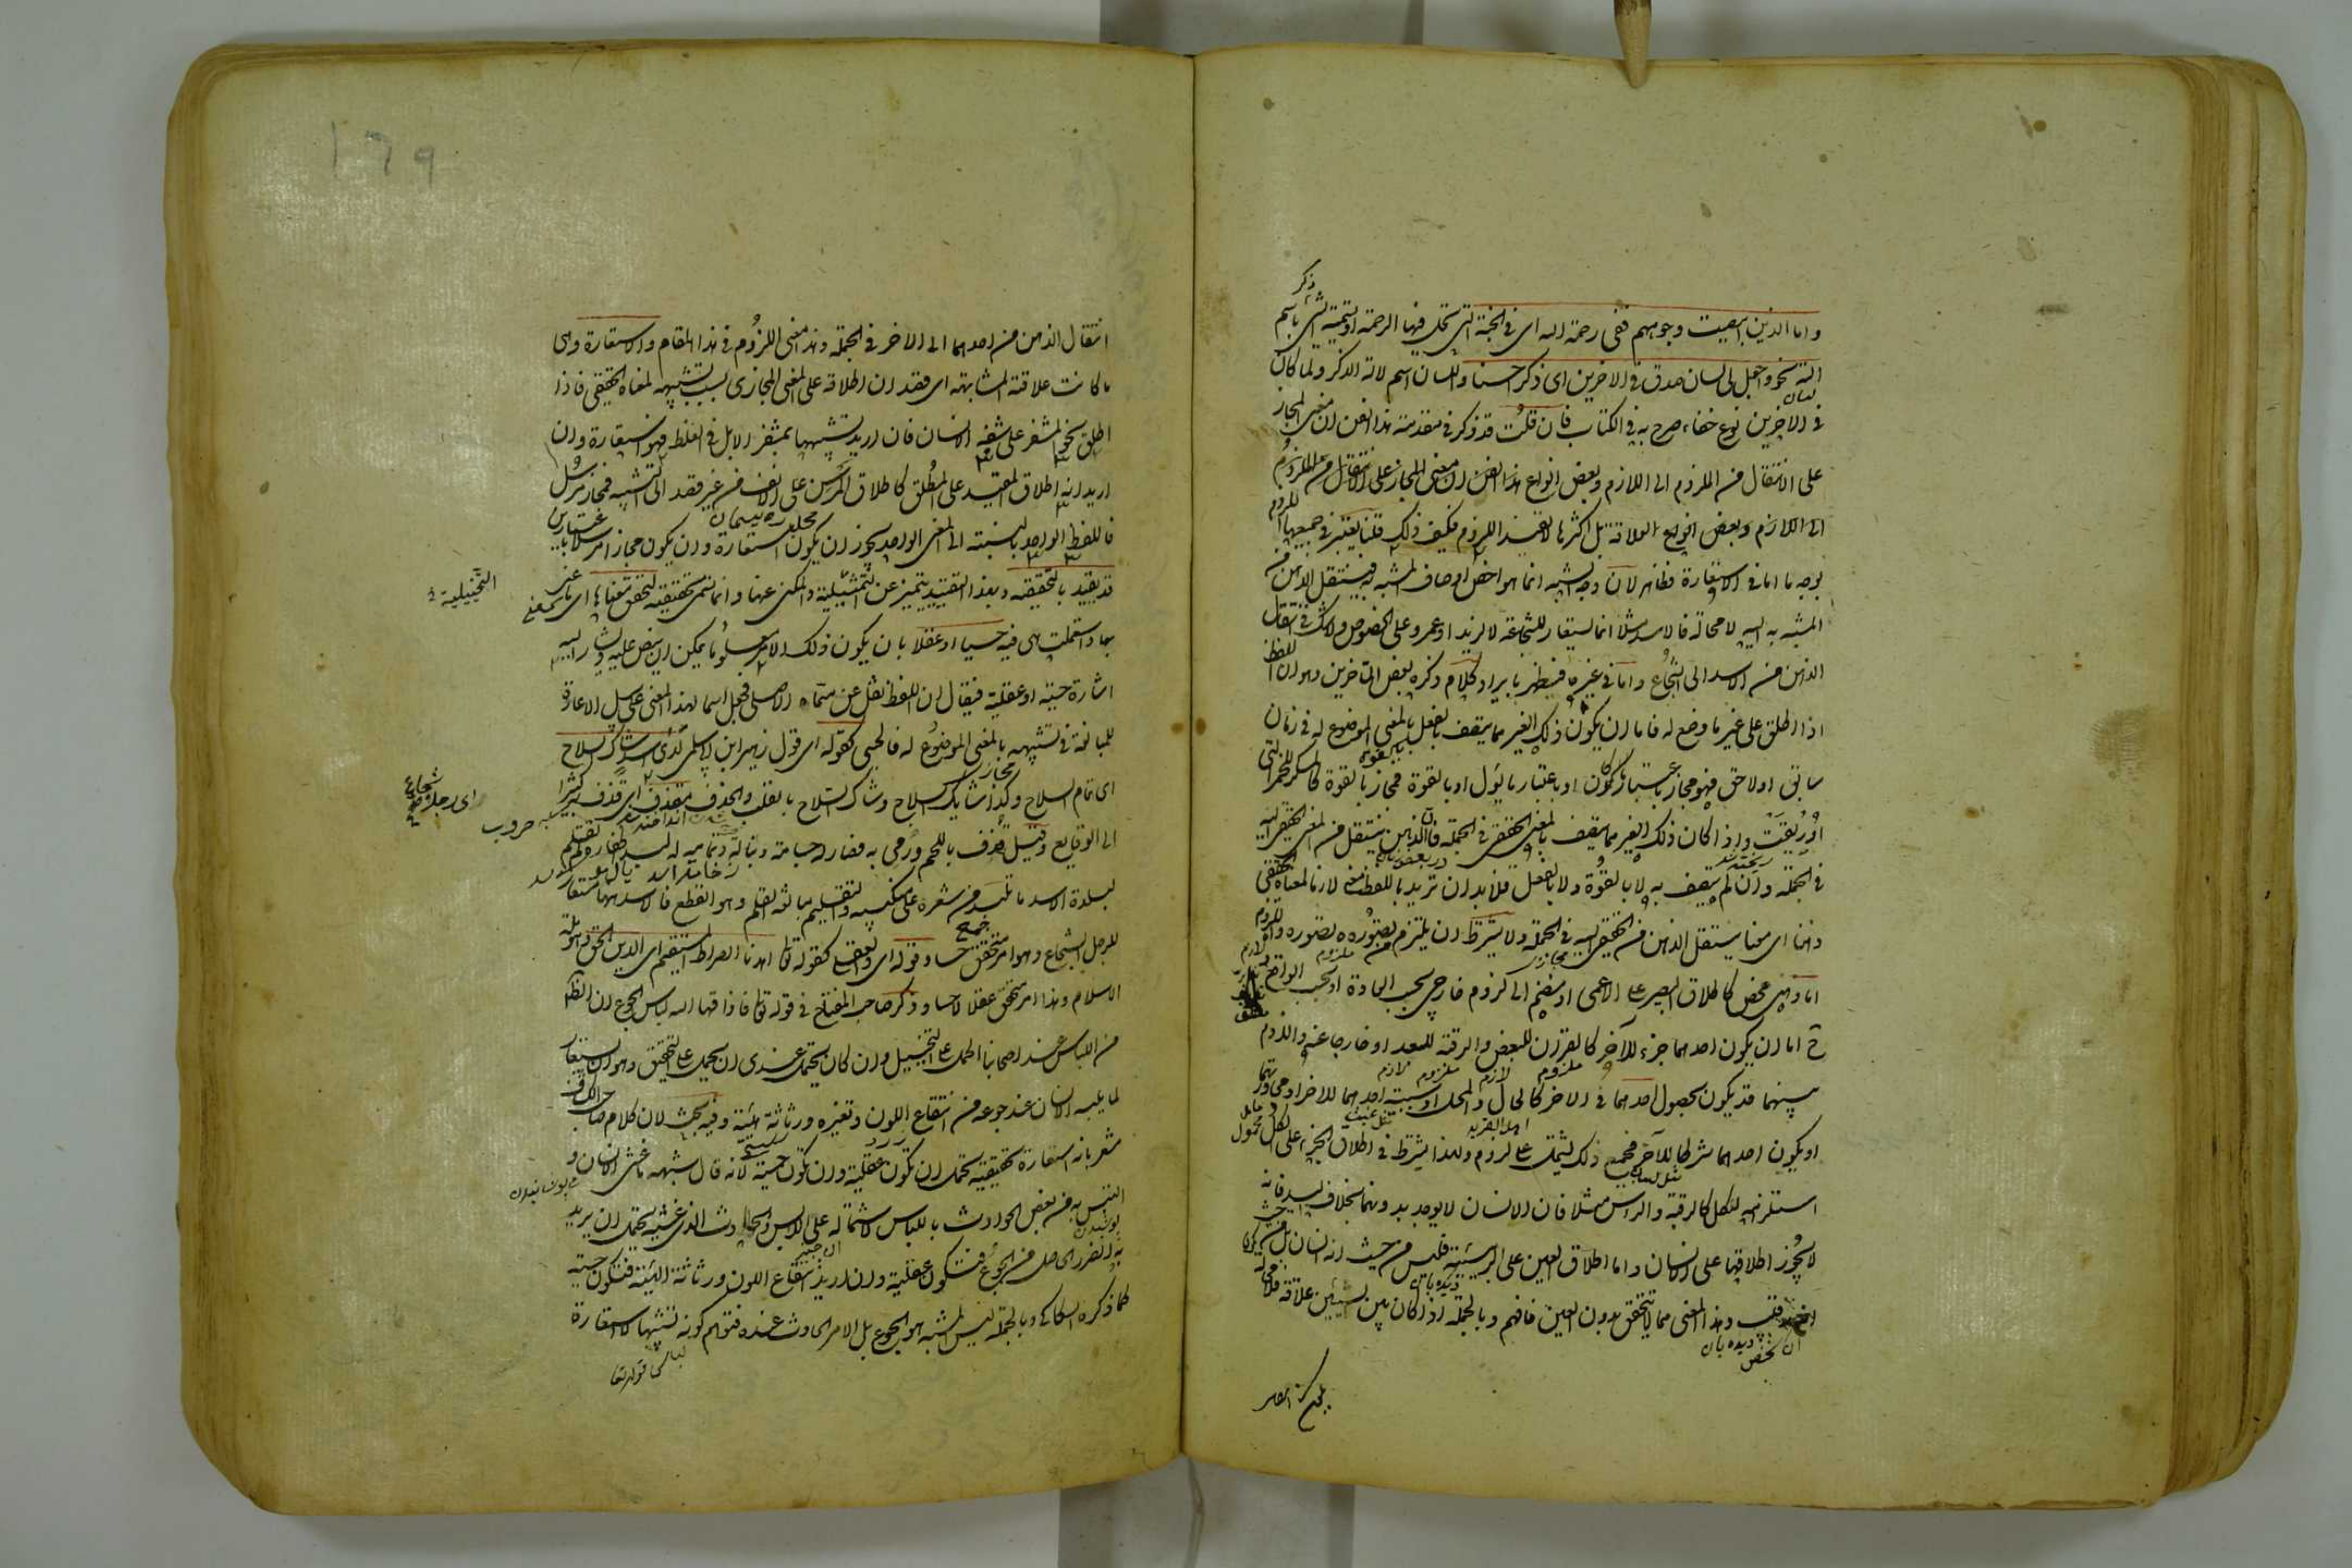 ذكر
واما الذين ابيضت وجوههم ففى رحمة الله اى فى الجنة التى تحل فيها الرحمة او تسمية الشئ باسم
آلته نحو واجعل لى لسان صدق فى الاخرين اى ذكرا حسنا واللسان اسم لآلة الذكر ولما كان
فى الاخرين نوع خفاء صرح به فى الكتاب فان قلت قد ذكر فى مقدمة هذا الفن ان مبنى المجاز
على الانتقال من الملزوم الى اللازم وبعض انواع العلاقة بل اكثرها لا يفيد اللزوم فكيف ذلك قلنا يعتبر فى جميعها اللزوم
بوجه ما اما فى الاستعارة فظاهر لان وجه الشبه انما هو اخص اوصاف المشبه به فينتقل الذهن من
المشبه به اليه لا محالة فالاسد مثلا انما يستعار للشجاعة لا لزيد او عمرو على الخصوص ولا شك فى انتقال
الذهن من الاسد الى الشجاع واما فى غيرها فيظهر بايراد كلام ذكره بعض المتأخرين وهو ان اللفظ
اذا اطلق على غير ما وضع له فاما ان يكون ذلك الغير مما يتصف بالفعل بالمعنى الموضوع له فى زمان
سابق او لاحق فهو مجاز باعتبار ما كان او باعتبار ما يؤل او بالقوة فمجاز بالقوة كالمسكر للخمر التى
اريقت واذا كان ذلك الغير مما يتصف بالمعنى الحقيقى فى الجملة فالذهن ينتقل من المعنى الحقيقى اليه
فى الجملة وان لم يتصف به لا بالقوة ولا بالفعل فلا بد ان تريد باللفظ معنى لازما لمعناه الحقيقى
ذهنا اى معنا ينتقل الذهن من الحقيقى اليه فى الجملة ولا يشترط ان يلزم من تصوره تصوره واللزوم
اما ذهنى محض كاطلاق البصير على الاعمى او منضم الى لزوم خارجى بحسب العادة او بحسب الواقع
ح اما ان يكون احدهما جزء للآخر كالقرآن للبعض والرقبة للعبد او خارجا عنه واللزوم
بينهما قد يكون بحصول احدهما فى الاخر كالحال والمحل او سببية احدهما للاخر او مجاورتهما
او يكون احدهما شرطا للآخر فجميع ذلك يشتمل على لزوم ولهذا يشترط فى اطلاق الجزء على الكل
استلزامه للكل كالرقبة والراس مثلا فان الانسان لا يوجد بدونهما بخلاف اليد فانه
لا يجوز اطلاقها على الانسان واما اطلاق العين على الربيئة فليس من حيث انه انسان بل من حيث
انه رقيب وهذا المعنى مما لا يتحقق بدون العين فافهم وبالجملة اذا كان بين الشيئين علاقة فلا محالة
ديده بان
شخص
انتقال الذهن من احدهما الى الاخر فى الجملة وهذا معنى اللزوم فى هذا المقام والاستعارة وهى
ما كانت علاقته المشابهة اى قصد ان اطلاقه على المعنى المجازى بسبب تشبيهه لمعناه الحقيقى فاذا
اطلق نحو المشفر على شفة الانسان فان اريد تشبيهها بمشفر الابل فى الغلظ فهو استعارة وان
اريد انه اطلاق المقيد على المطلق كاطلاق المرسن على الانف من غير قصد الى التشبيه فمجاز مرسل
فاللفظ الواحد بالنسبة الى المعنى الواحد يجوز ان يكون استعارة وان يكون مجازا مرسلا باعتبارين
قد يقيد بالتحقيقية وبهذا التقييد يتميز عن التمثيلية والمكنى عنها وانما تسمى تحقيقية لتحقق معناها اى ما عنى
التخييلية
بها واستعملت هى فيه حسيا او عقلا بان يكون ذلك الامر معلوما يمكن ان ينص عليه ويشار اليه
اشارة حسية او عقلية فيقال ان اللفظ نقل عن مسماه الاصلى فجعل اسما لهذا المعنى على سبيل الاعارة
للمبالغة فى تشبيهه بالمعنى الموضوع له فالحسى كقوله اى قول زهير ابن ابى سلمى لدى اسد شاكى السلاح
اى تام السلاح وكذا شايك السلاح وشاك السلاح بالقلب والحذف مقذف اى قذف به كثيرا
اى رجل شجاع
الى الوقايع وقيل قذف باللحم ورمى به فصار له جسامة ونبالة وتمامه له لبد اظفاره لم تقلم
لبدة الاسد ما تلبد من شعره على منكبيه والتقليم مبالغة القلم وهو القطع فالاسد ههنا مستعار
للرجل الشجاع وهو امر متحقق حسا وقوله اى والعقلى كقوله تعا اهدنا الصراط المستقيم اى الدين الحق وهو ملة
الاسلام وهذا امر متحقق عقلا لا حسا وذكر صاحب المفتاح فى قوله تعا فاذاقها الله لباس الجوع ان الظاهر
من اللباس عند اصحابنا الحمل على التخييل وان كان يحتمل عندى ان يحمل على التحقيق وهو ان يستعار
لما يلبسه الانسان عند جوعه من انتقاع اللون وتغيره ورثاثة هيئته وفيه بحث لان كلام صاحب الكشاف
مشعر بانه استعارة تحقيقية يحتمل ان تكون عقلية وان تكون حسية لانه قال شبه ما غشى الانسان و
التبس به من بعض الحوادث باللباس لاشتماله على اللابس والحادث الذى غشيه يحتمل ان يريد
به الضرر الحاصل من الجوع فتكون عقلية وان اريد انتقاع اللون ورثاثة الهيئة فتكون حسية
كما ذكره السكاكى وبالجملة ليس المشبه هو الجوع بل الامر الحادث عنده فتوهم كونه تشبيها لا استعارة